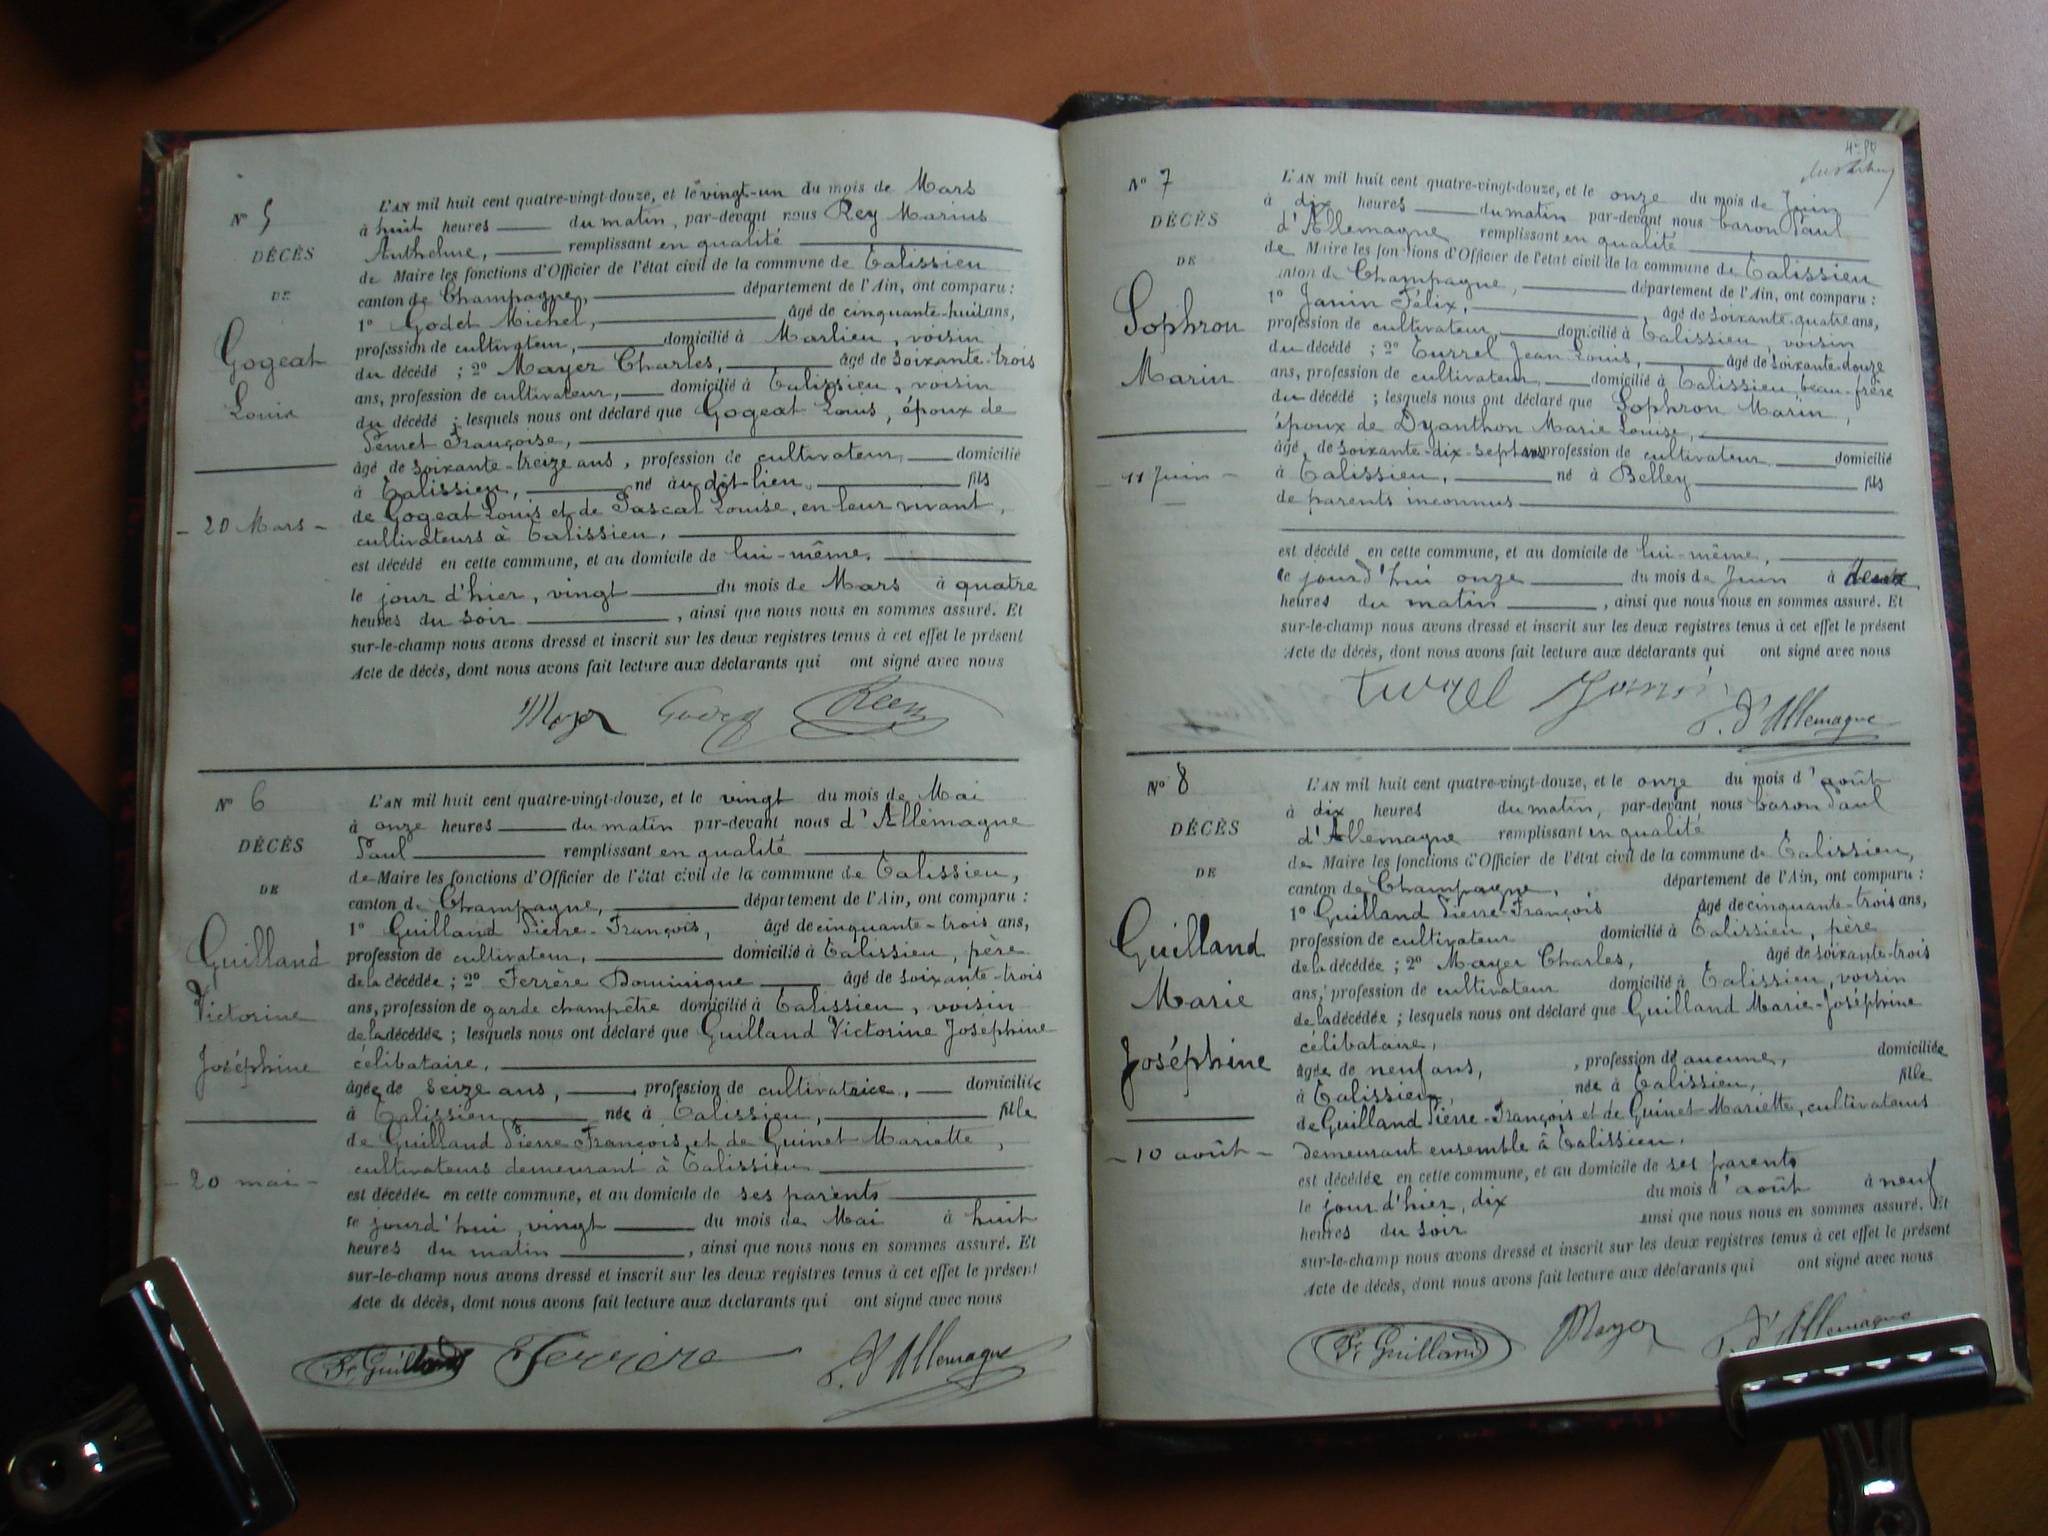 N° 5
DÉCÈS
DE
Gogeat
Louis
- 20 Mars -
L'AN mil huit cent quatre-vingt-douze, et le vingt-un du mois de Mars
à huit heures du matin, par-devant nous Rey Marius
Anthelme, remplissant en qualité
de Maire les fonctions d'Officier de l'état civil de la commune de Talissieu
canton de Champagne, département de l'Ain, ont comparu :
1° Godet Michel, âgé de cinquante-huit ans,
profession de cultivateur, domicilié à Marlieu, voisin
du décédé ; 2° Mayer Charles, âgé de soixante-trois
ans, profession de cultivateur, domicilié à Talissieu, voisin
du décédé ; lesquels nous ont déclaré que Gogeat Louis, époux de
Pemet Françoise,
âgé de soixante-treize ans, profession de cultivateur, domicilié
à Talissieu, né au dit-lieu, fils
de Gogeat Louis et de Pascal Louise, en leur vivant,
cultivateurs à Talissieu,
est décédé en cette commune, et au domicile de lui-même,
le jour d'hier, vingt du mois de Mars à quatre
heures du soir, ainsi que nous nous en sommes assuré. Et
sur-le-champ nous avons dressé et inscrit sur les deux registres tenus à cet effet le présent
Acte de décès, dont nous avons fait lecture aux déclarants qui ont signé avec nous
Mayer Godet
N° 6
DÉCÈS
DE
Guilland
Victorine
Joséphine
- 20 mai -
L'AN mil huit cent quatre-vingt-douze, et le vingt du mois de Mai
à onze heures du matin par-devant nous d'Allemagne
Paul remplissant en qualité
de Maire les fonctions d'Officier de l'état civil de la commune de Talissieu,
canton de Champagne, département de l'Ain, ont comparu :
1° Guilland Pierre-François, âgé de cinquante-trois ans,
profession de cultivateur, domicilié à Talissieu, père
de la décédée ; 2° Ferrère Dominique âgé de soixante-trois
ans, profession de garde champêtre domicilié à Talissieu, voisin
de la décédée ; lesquels nous ont déclaré que Guilland Victorine Joséphine
célibataire,
âgée de seize ans, profession de cultivatrice, domiciliée
à Talissieu, née à Talissieu, fille
de Guilland Pierre François, et de Guinet Mariette,
cultivateurs demeurant à Talissieu
est décédée en cette commune, et au domicile de ses parents
ce jourd'hui, vingt du mois de Mai à huit
heures du matin, ainsi que nous nous en sommes assuré. Et
sur-le-champ nous avons dressé et inscrit sur les deux registres tenus à cet effet le présent
Acte de décès, dont nous avons fait lecture aux déclarants qui ont signé avec nous
Fs Guilland Ferrere P. d'Allemagne
N° 7
DÉCÈS
DE
Sophron
Marin
- 11 Juin -
L'AN mil huit cent quatre-vingt-douze, et le onze du mois de Juin
à dix heures du matin par-devant nous baron Paul
d'Allemagne remplissant en qualité
de Maire les fonctions d'Officier de l'état civil de la commune de Talissieu
canton de Champagne, département de l'Ain, ont comparu :
1° Janin Félix, âgé de soixante-quatre ans,
profession de cultivateur, domicilié à Talissieu, voisin
du décédé ; 2° Turrel Jean Louis, âgé de soixante-douze
ans, profession de cultivateur, domicilié à Talissieu, beau-frère
du décédé ; lesquels nous ont déclaré que Sophron Marin,
époux de Dyanthon Marie Louise,
âgé de soixante-dix-sept ans profession de cultivateur domicilié
à Talissieu, né à Belley fils
de parents inconnus
est décédé en cette commune, et au domicile de lui-même,
ce jourd'hui onze du mois de Juin à deux
heures du matin, ainsi que nous nous en sommes assuré. Et
sur-le-champ nous avons dressé et inscrit sur les deux registres tenus à cet effet le présent
Acte de décès, dont nous avons fait lecture aux déclarants qui ont signé avec nous
turrel Janin P. d'Allemagne
N° 8
DÉCÈS
DE
Guilland
Marie
Joséphine
- 10 août -
L'AN mil huit cent quatre-vingt-douze, et le onze du mois d'août
à dix heures du matin, par-devant nous baron Paul
d'Allemagne remplissant en qualité
de Maire les fonctions d'Officier de l'état civil de la commune de Talissieu,
canton de Champagne, département de l'Ain, ont comparu :
1° Guilland Pierre-François âgé de cinquante-trois ans,
profession de cultivateur domicilié à Talissieu, père
de la décédée ; 2° Mayer Charles, âgé de soixante-trois
ans, profession de cultivateur domicilié à Talissieu, voisin
de la décédée ; lesquels nous ont déclaré que Guilland Marie-Joséphine
célibataire,
âgée de neuf ans, profession de aucune, domiciliée
à Talissieu, née à Talissieu, fille
de Guilland Pierre-François et de Guinet Mariette, cultivateurs
demeurant ensemble à Talissieu.
est décédée en cette commune, et au domicile de ses parents
le jour d'hier, dix du mois d'août à neuf
heures du soir ainsi que nous nous en sommes assuré. Et
sur-le-champ nous avons dressé et inscrit sur les deux registres tenus à cet effet le présent
Acte de décès, dont nous avons fait lecture aux déclarants qui ont signé avec nous
Fs Guilland Mayer P. d'Allemagne